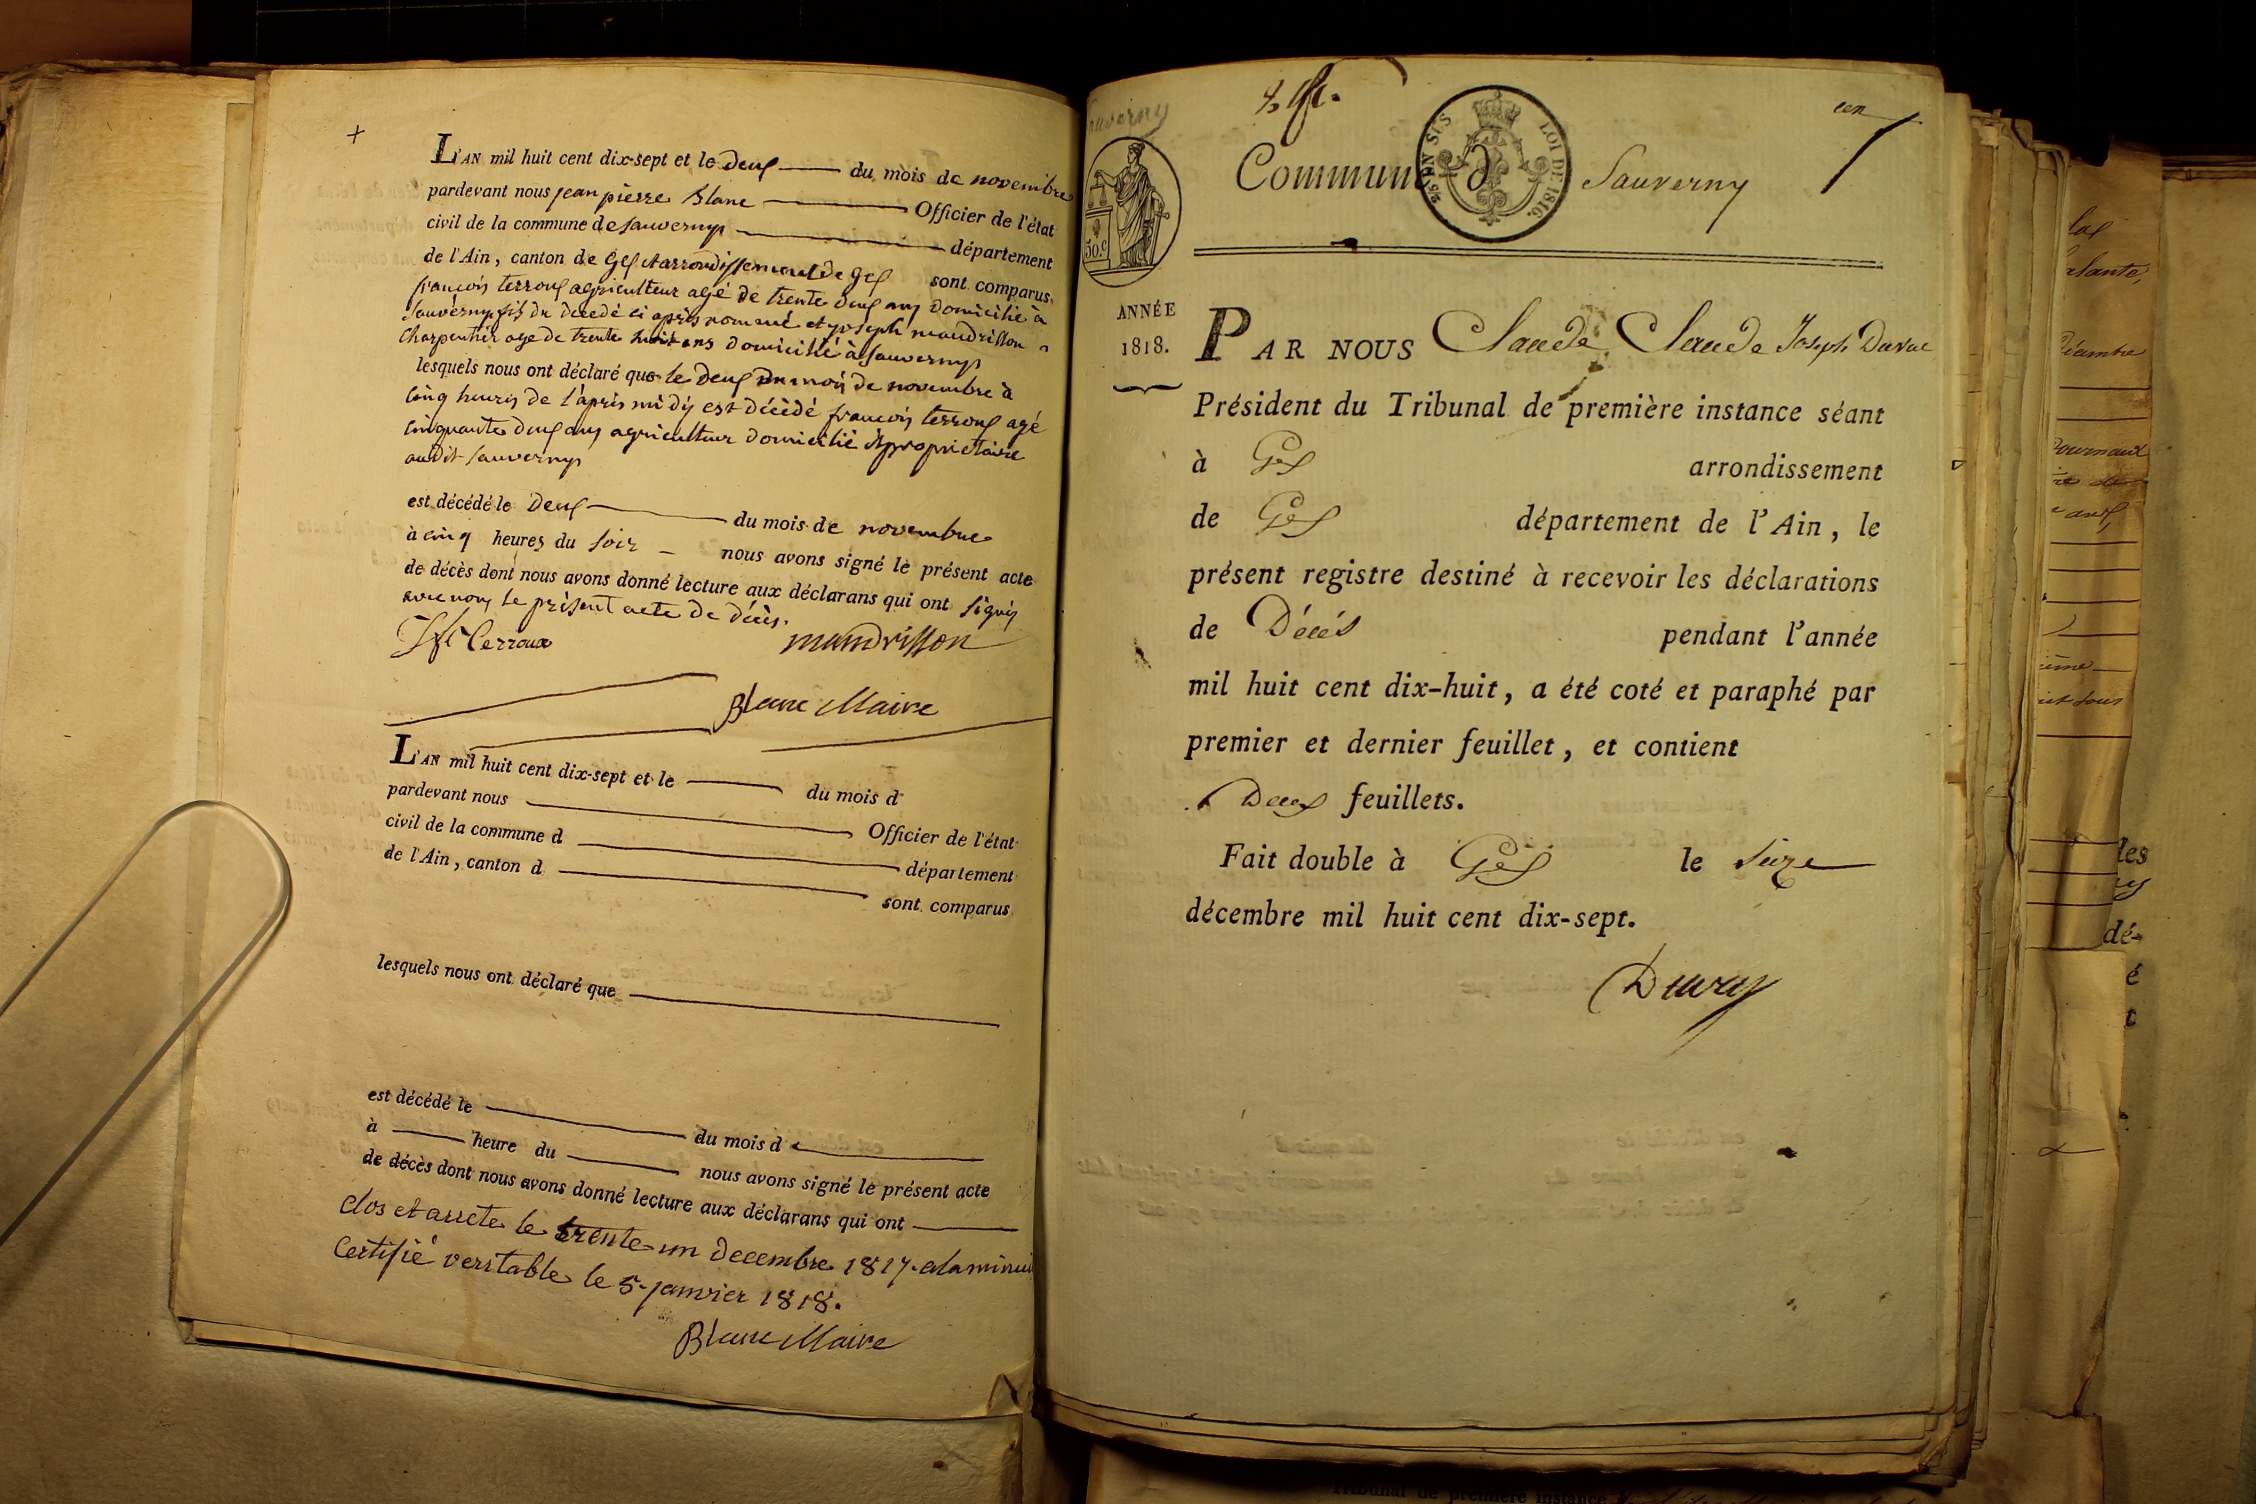 L'AN mil huit cent dix-sept et le deux du mois de novembre
pardevant nous jean pierre Blanc Officier de l'état
civil de la commune de sauverny département
de l'Ain, canton de Gex et arrondissement de Gex sont comparus
françois terroux agriculteur agé de trente deux ans domicilié à
sauverny fils du decedé ci après nommé et joseph mandrisson
charpentier age de trente huit ans domicilié à sauverny
lesquels nous ont déclaré que le deux du mois de novembre à
cinq heures de l'après midy est décédé françois terroux agé
cinquante deux ans agriculteur domicilié propriétaire
audit sauverny
est décédé le deux du mois de novembre
à cinq heures du soir nous avons signé le présent acte
de décès dont nous avons donné lecture aux déclarans qui ont signés
avec nous le présent acte de décès.
terroux mandrisson
Blanc Maire
L'AN mil huit cent dix-sept et le du mois d
pardevant nous Officier de l'état
civil de la commune d département
de l'Ain, canton d sont comparus
lesquels nous ont déclaré que
est décédé le du mois d
à heure du nous avons signé le présent acte
de décès dont nous avons donné lecture aux déclarans qui ont
clos et arrete le trente un decembre 1817. a la minui
Certifié veritable le 5 janvier 1818.
Blanc Maire
Sauverny
50.c
EN SUS LOI DE 1816.
Commun d Sauverny
ANNÉE
1818.
PAR NOUS Claude Claude Joseph Duval
Président du Tribunal de première instance séant
à Gex arrondissement
de Gex département de l'Ain, le
présent registre destiné à recevoir les déclarations
de Décés pendant l'année
mil huit cent dix-huit, a été coté et paraphé par
premier et dernier feuillet, et contient
Deux feuillets.
Fait double à Gex le seize
décembre mil huit cent dix-sept.
Duval